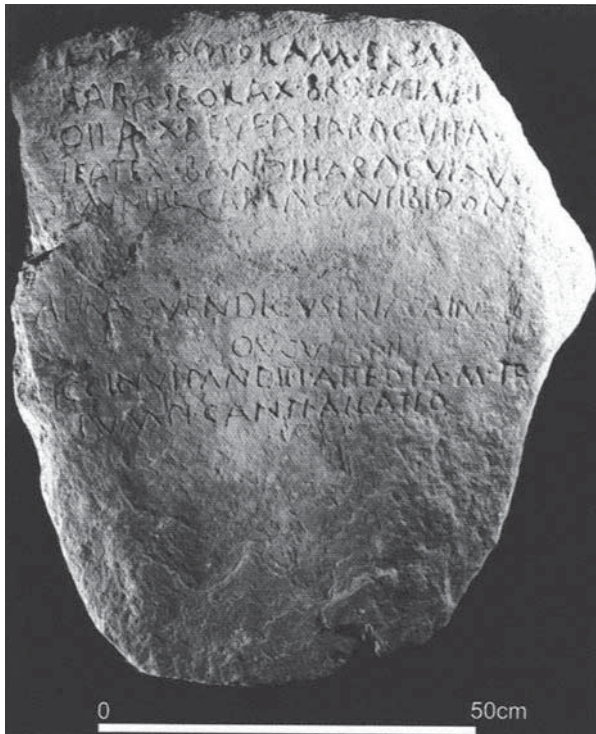 AM·OILAM·ERBAM
HARASE·OILA·X·BROENEIAE·H
OILA·X·REVE AHARACVI·TAV
IFATE·X·BANDI HARACVI AV
MVNITIE CARIA CANTIBIDONE
APINVS·VENDICVS·ERIACAINV
OVGVI
ICCINVI·PANDITI·ATTEDIA·M·TR
PVMPI·CANTI·AILATIO